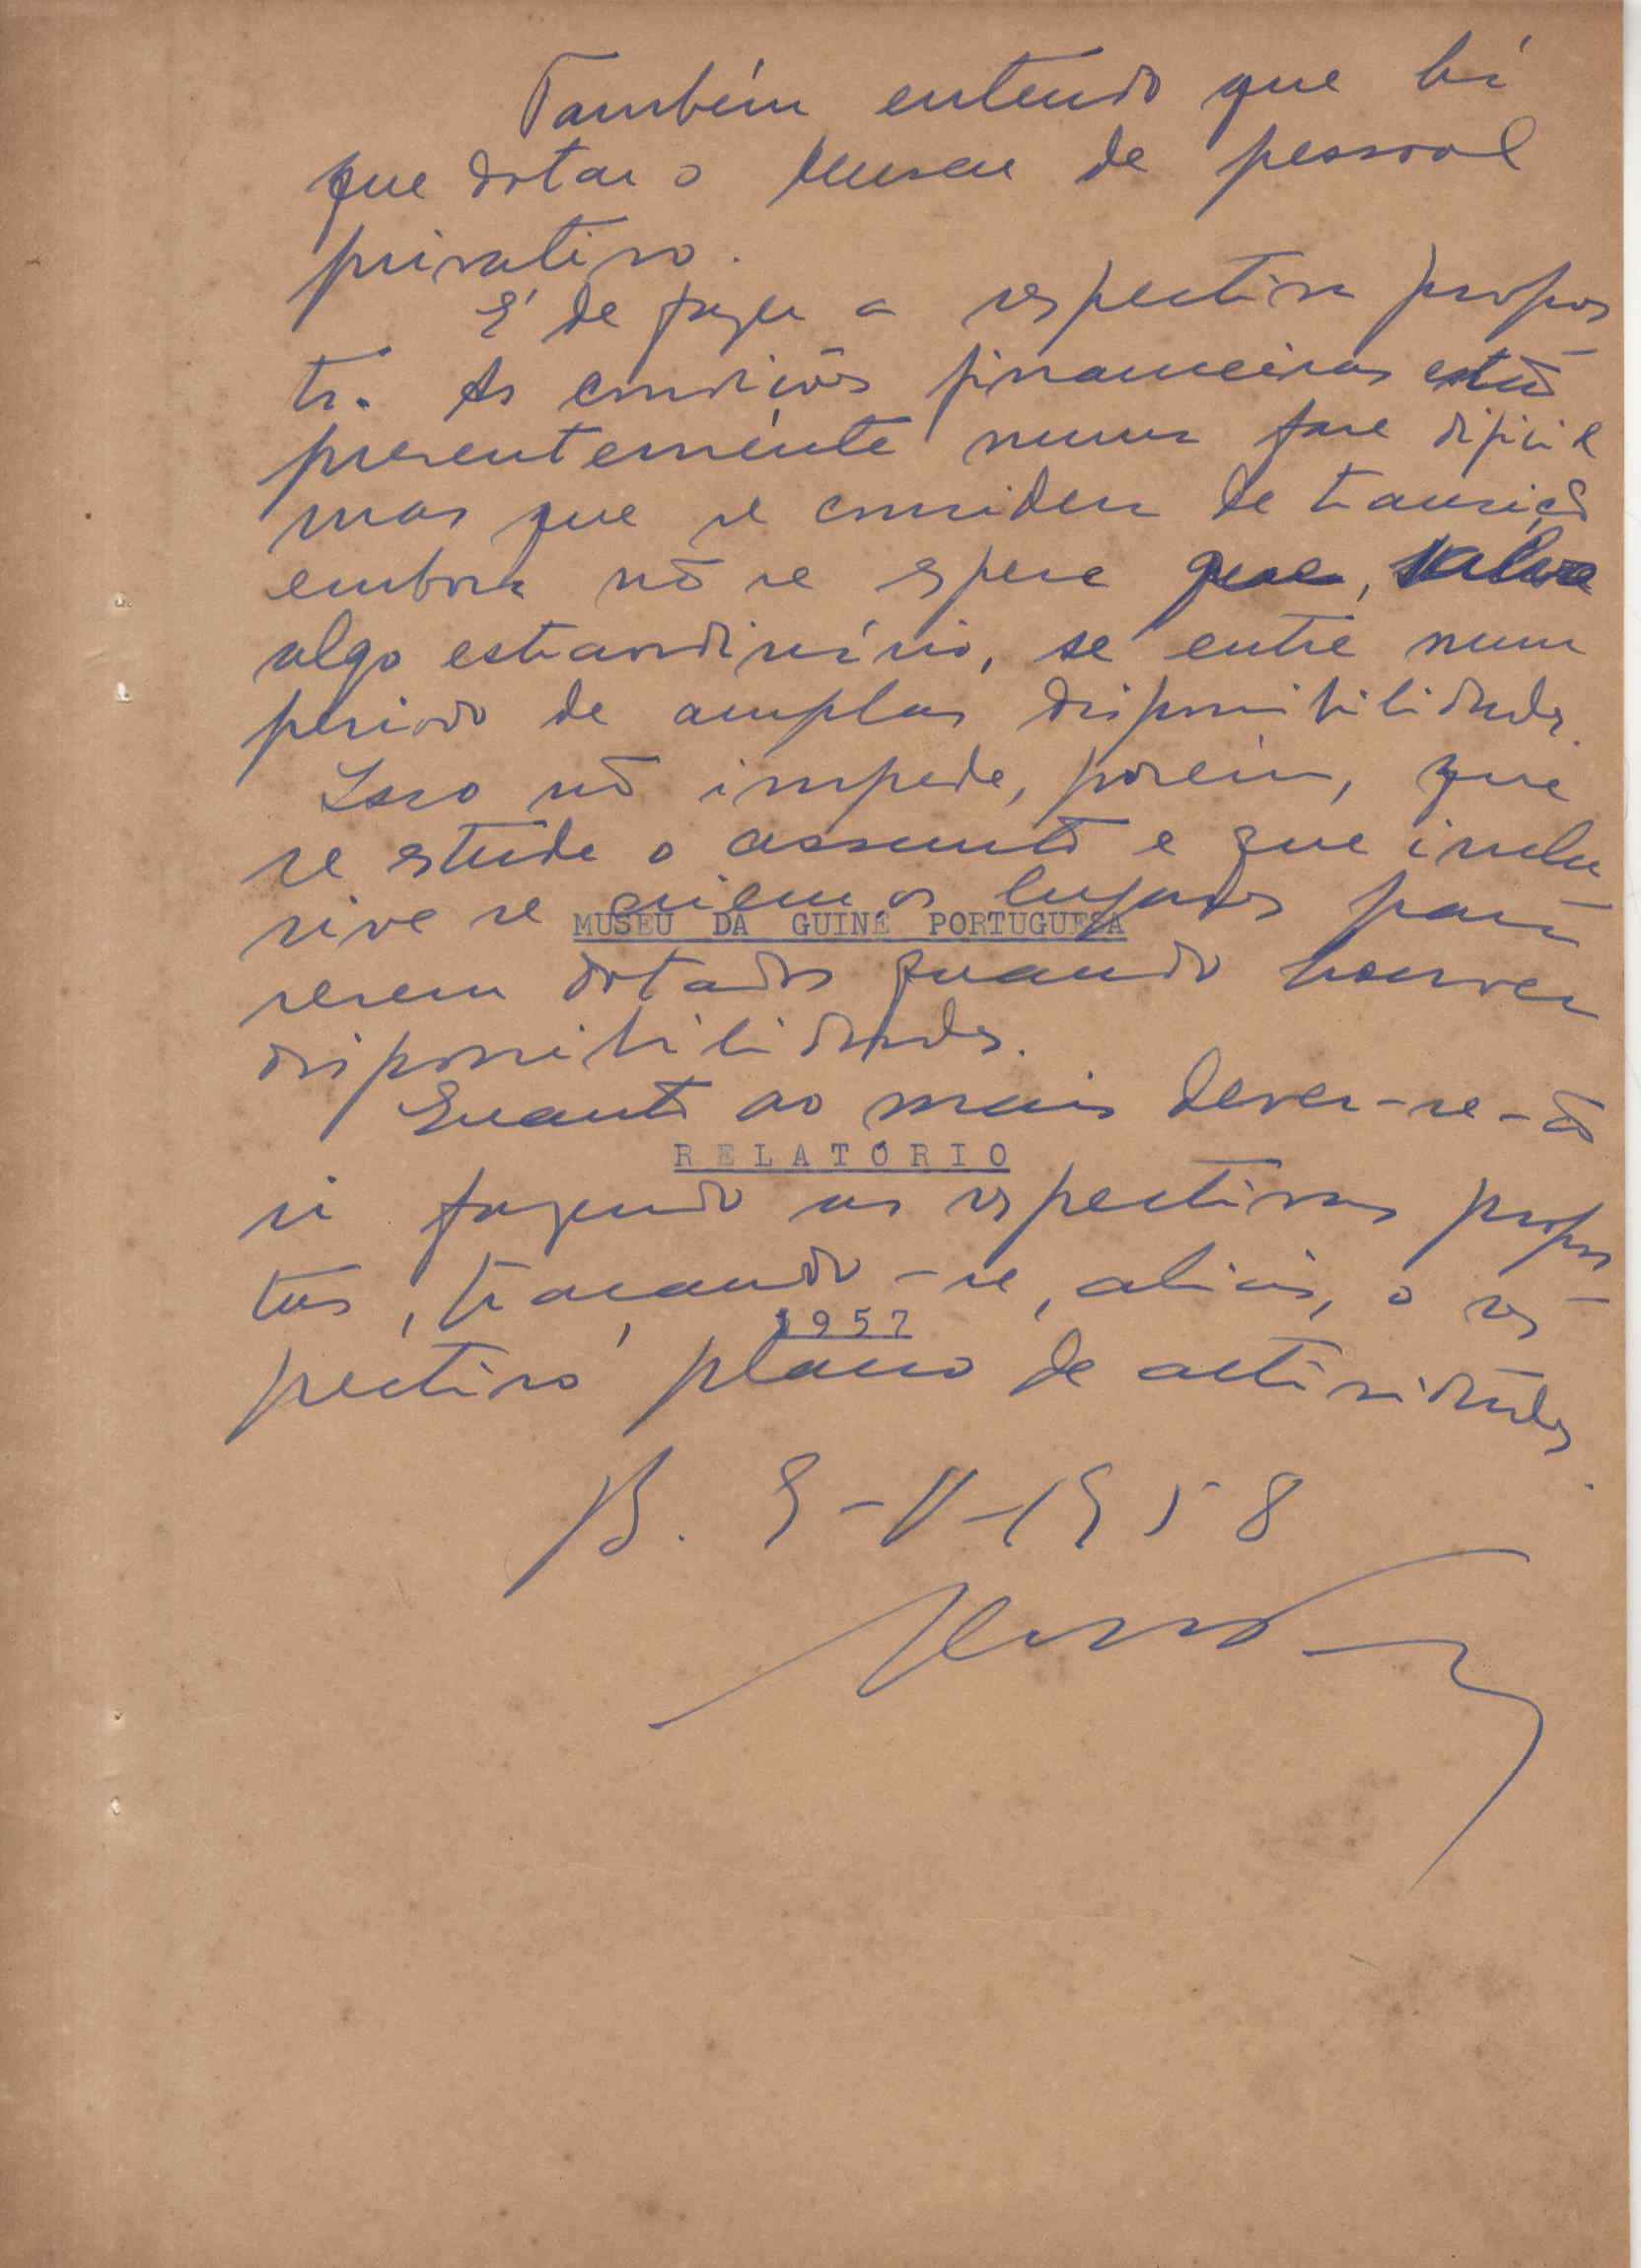 Também entendo que há
que dotar o Museu de pessoal
privativo.
É de fazer a respectiva propos
ta. As condições financeiras estão
presentemente numa fase dificil
mas que se considera de transição
embora não se espere que, salvo
algo estraordinário, se entre num
periodo de amplas disponibilidades.
Isso não impede, porém, que
se estude o assunto e que inclu
sive se criem os lugares para
MUSEU DA GUINÉ PORTUGUESA
serem dotados quando houver
disponibilidades.
Quanto ao mais dever-se-ão
RELATÓRIO
ir fazendo as respectivas propos
tas, traçando-se, aliás, o res-
1957
pectivo plano de actividades.
B. 9-V-1958